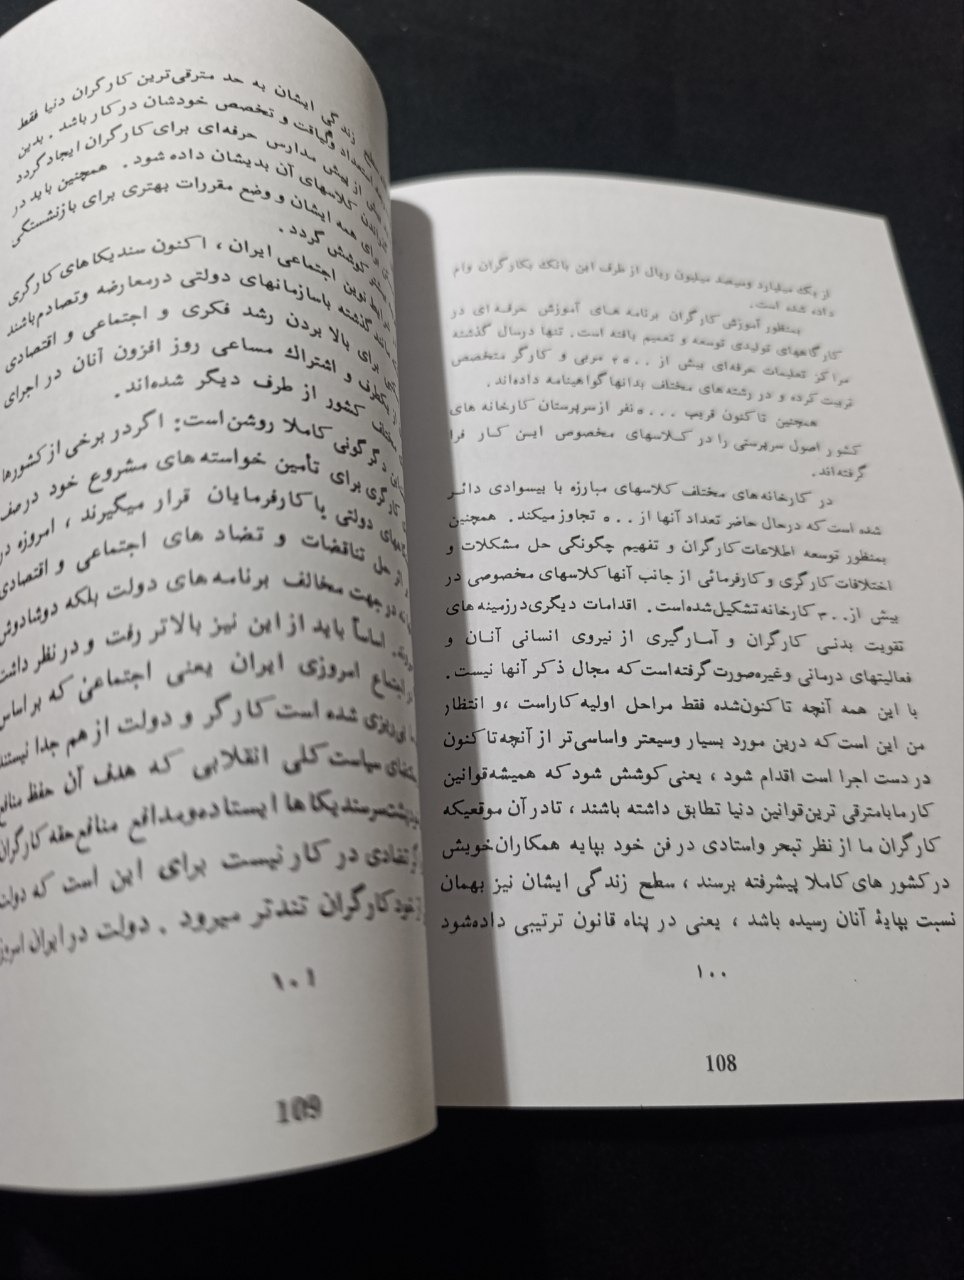 از یک میلیارد وسیصد میلیون ریال از طرف این بانک بکارگران وام
داده شده است.
بمنظور آموزش کارگران برنامه های آموزش حرفه ای در
کارگاههای تولیدی توسعه و تعمیم یافته است. تنها درسال گذشته
مراکز تعلیمات حرفه‌ای بیش از ۲۰۰۰ مربی و کارگر متخصص
تربیت کرده و در رشته‌های مختلف بدانها گواهینامه داده‌اند.
همچنین تا کنون قریب ۵۰۰۰ نفر ازسرپرستان کارخانه های
کشور اصول سرپرستی را در کلاسهای مخصوص این کار فرا
گرفته‌اند.
در کارخانه‌های مختلف کلاسهای مبارزه با بیسوادی دائر
شده است که درحال حاضر تعداد آنها از ۵۰۰ تجاوز میکند. همچنین
بمنظور توسعه اطلاعات کارگران و تفهیم چگونگی حل مشکلات و
اختلافات کارگری و کارفرمائی از جانب آنها کلاسهای مخصوصی در
بیش از ۳۰۰ کارخانه تشکیل شده‌است. اقدامات دیگری درزمینه های
تقویت بدنی کارگران و آمارگیری از نیروی انسانی آنان و
فعالیتهای درمانی وغیره‌صورت گرفته‌است که مجال ذکر آنها نیست.
با این همه آنچه تا کنون‌شده فقط مراحل اولیه کاراست ،و انتظار
من این است که درین مورد بسیار وسیعتر واساسی‌تر از آنچه تا کنون
در دست اجرا است اقدام شود ، یعنی کوشش شود که همیشه‌قوانین
کار ما بامترقی ترین‌قوانین دنیا تطابق داشته باشند ، تا در آن موقعیکه
کارگران ما از نظر تبحر واستادی در فن خود بپایه همکاران خویش
در کشور های کاملا پیشرفته برسند ، سطح زندگی ایشان نیز بهمان
نسبت بپایۀ آنان رسیده باشد ، یعنی در پناه قانون ترتیبی داده‌شود
۱۰۰
108
سطح زندگی ایشان به حد مترقی‌ترین کارگران دنیا فقط
استعداد ولیاقت و تخصص خودشان در کار باشد . بدین
از پیش مدارس حرفه‌ای برای کارگران ایجاد گردد
کلاسهای آن بدیشان داده شود . همچنین باید در
برای همه ایشان و وضع مقررات بهتری برای بازنشستگی
کوشش گردد .
نوین اجتماعی ایران ، اکنون سندیکاهای کارگری
مانند گذشته باسازمانهای دولتی درمعارضه وتصادم‌باشند
برای بالا بردن رشد فکری و اجتماعی و اقتصادی
از یکطرف و اشتراک مساعی روز افزون آنان در اجرای
مختلف کشور از طرف دیگر شده‌اند .
دگرگونی کاملا روشن است: اگر در برخی از کشورها
کارگری برای تأمین خواسته های مشروع خود درصف
دولتی یا کارفرمایان قرار میگیرند ، امروزه در
از حل تناقضات و تضاد های اجتماعی و اقتصادی
نه در جهت مخالف برنامه های دولت بلکه دوشادوش
اساساً باید از این نیز بالاتر رفت و در نظر داشت
اجتماع امروزی ایران یعنی اجتماعی که بر اساس
شده است کارگر و دولت از هم جدا نیستند
سیاست کلی انقلابی که هدف آن حفظ منافع
پشت‌سر سندیکاها ایستاده‌ومدافع منافع‌حقه کارگران
تضادی در کار نیست برای این است که دولت
از خود کارگران تندتر میرود . دولت در ایران امروز
۱۰۱
109